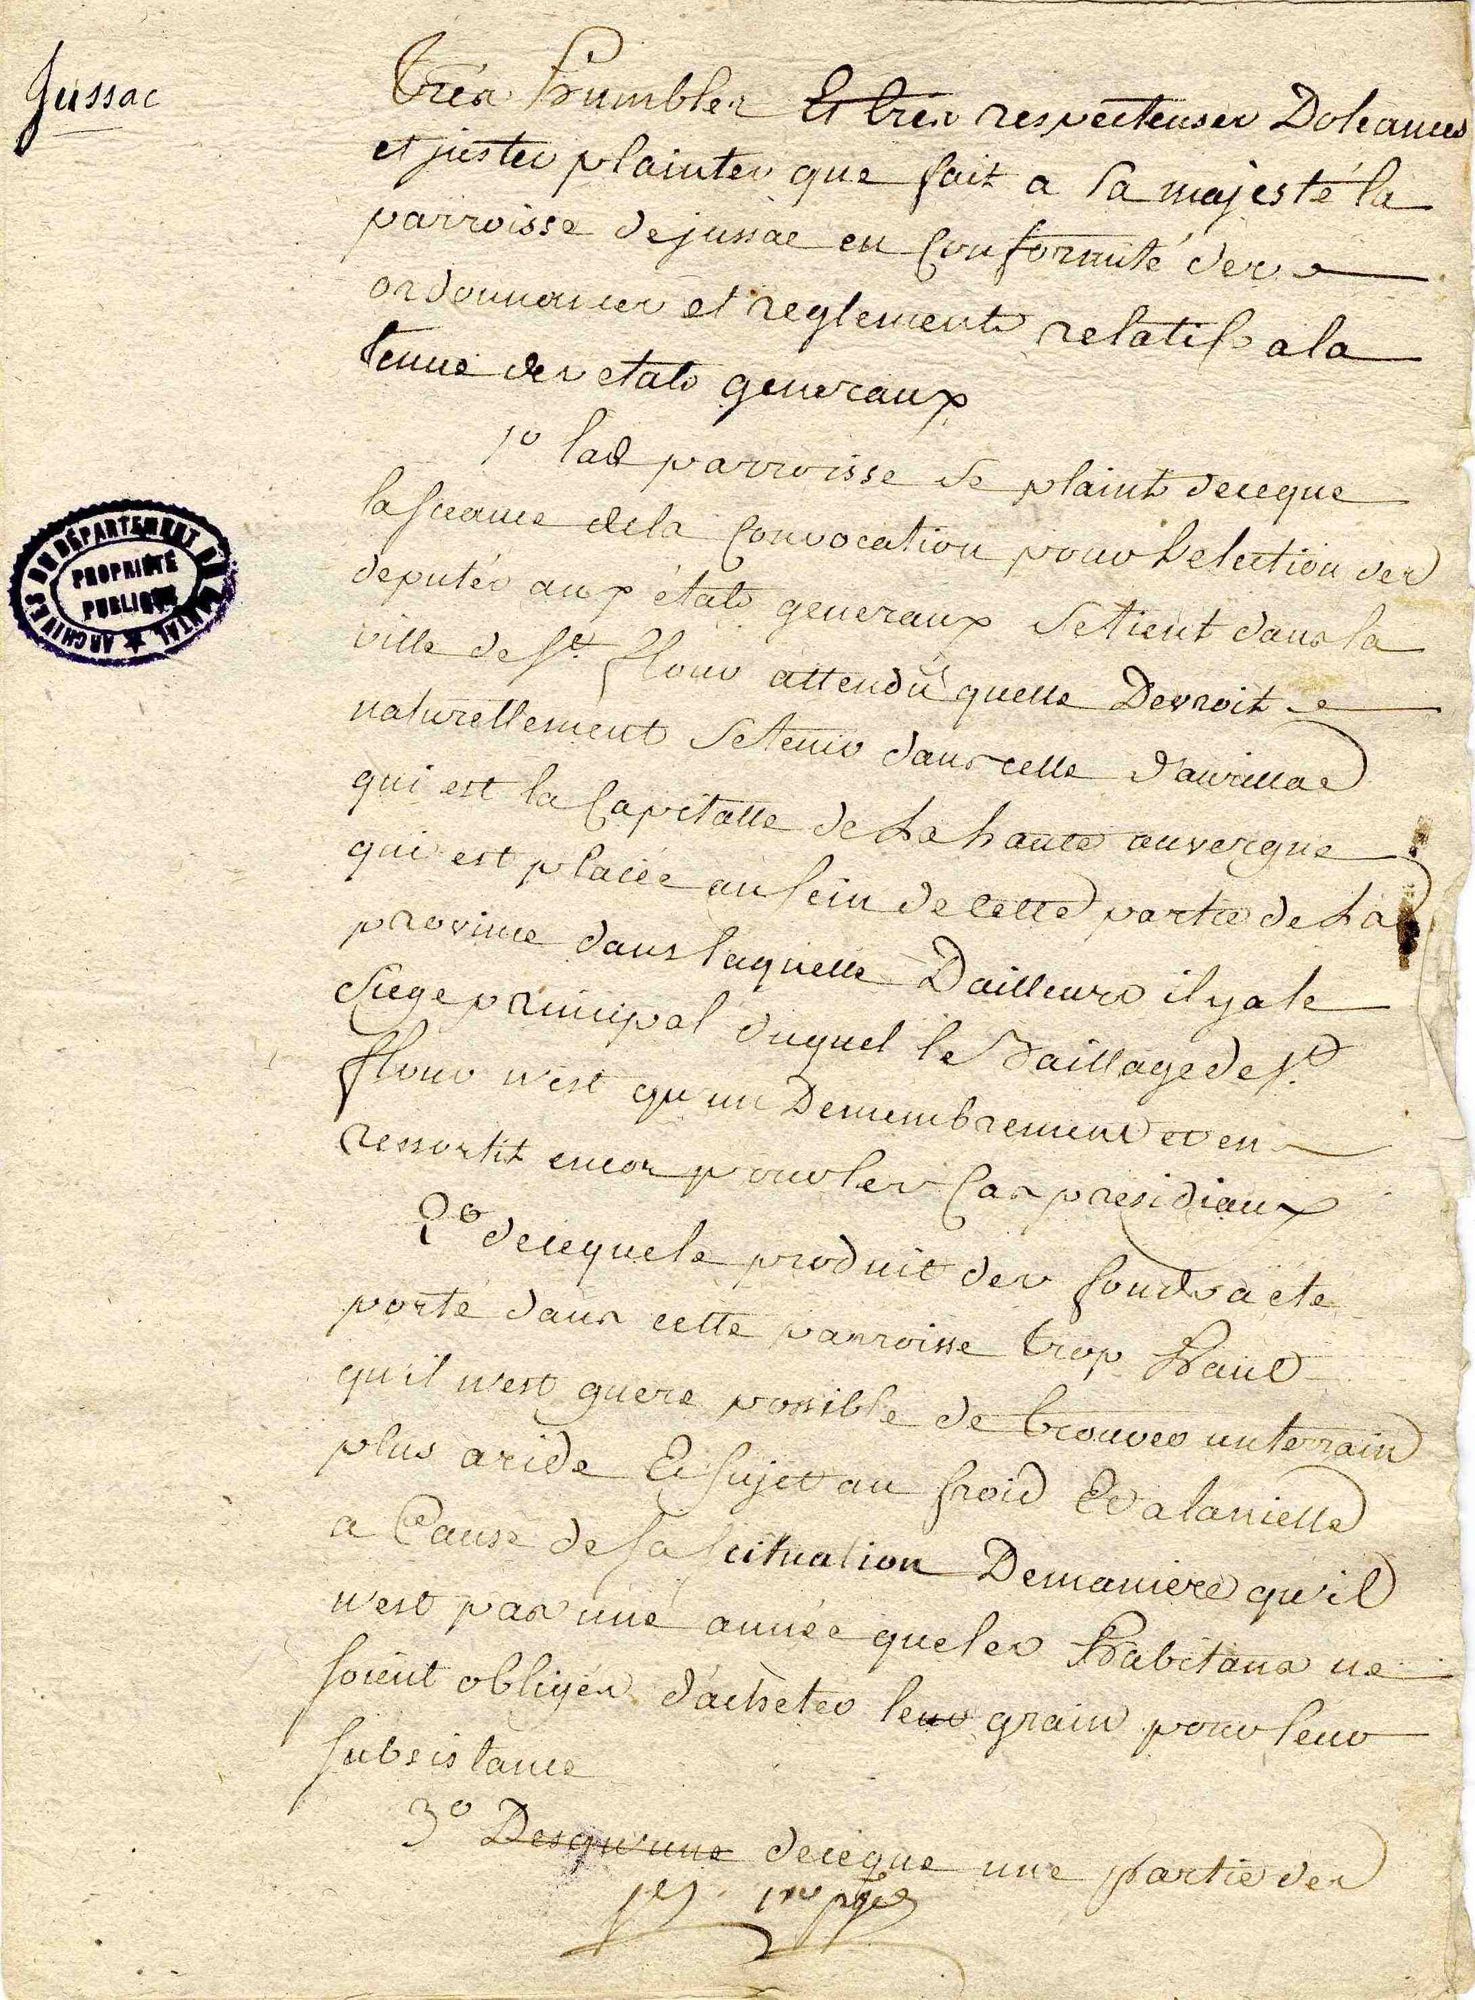 Jussac
très humbles Et très respectueuses Doleances
et justes plaintes que fait a sa majesté la
parroisse de jussac en Conformité des
ordonnances et reglements relatifs a la
tenue des etats generaux
1º lad parroisse se plaint de ceque
la sceance de la Convocation pour L'election des
deputés aux états generaux se tient dans la
ville de St. flour attendû quelle Devroit
naturellement se tenir dans celle d'aurillac
qui est la Capitalle de La haute auvergne
qui est placée au sein de cette partie de La
province dans laquelle Dailleurs il y a le
siege principal duquel le Baillage de St.
flour n'est qu'un Demembrement et en
ressortit encor pour les Cas presidiaux
2º de ceque le produit des fonds a ete
porté dans cette parroisse trop haut
qu'il n'est guere possible de trouver un terrain
plus aride Et sujet au froid Et a la nielle
a Cause de sa scituation De maniere qu'il
n'est pas une année que les habitans ne
soient obligés d'acheter leur grain pour leur
subsistance
3º Desqu'une de ceque une partie des
ARCHIVES DU DÉPARTEMENT DU CANTAL
PROPRIÉTÉ
PUBLIQUE